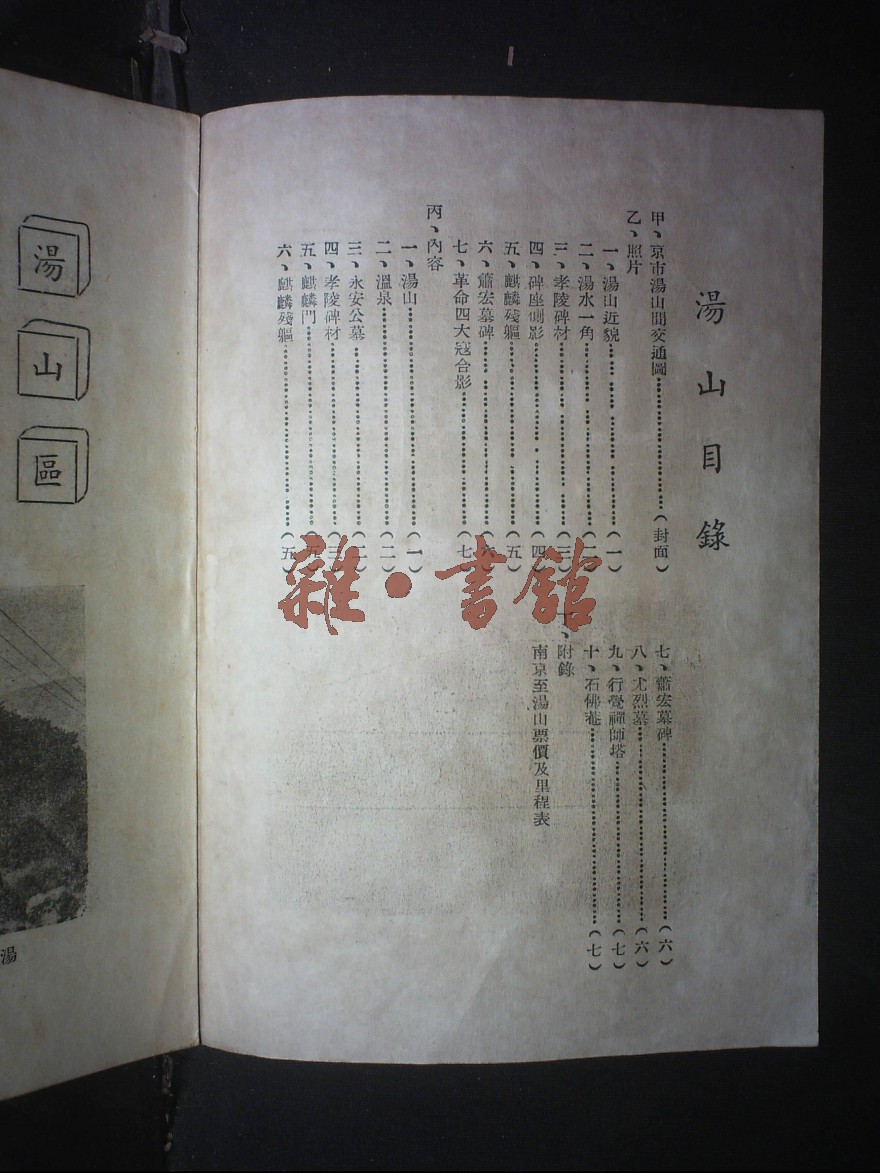 湯山目錄
甲、京市湯山間交通圖（封面）
乙、照片
一、湯山近貌（一）
二、湯水一角（二）
三、孝陵碑材（三）
四、碑座側影（四）
五、麒麟殘軀（五）
六、蕭宏墓碑（六）
七、革命四大寇合影（七）
丙、內容
一、湯山（一）
二、溫泉（二）
三、永安公墓（二）
四、孝陵碑材（三）
五、麒麟門（五）
六、麒麟殘軀（五）
七、蕭宏墓碑（六）
八、尤烈墓（六）
九、行覺禪師塔（七）
十、石佛菴（七）
丁、附錄
南京至湯山票價及里程表
湯
山
區
湯
雜·書館